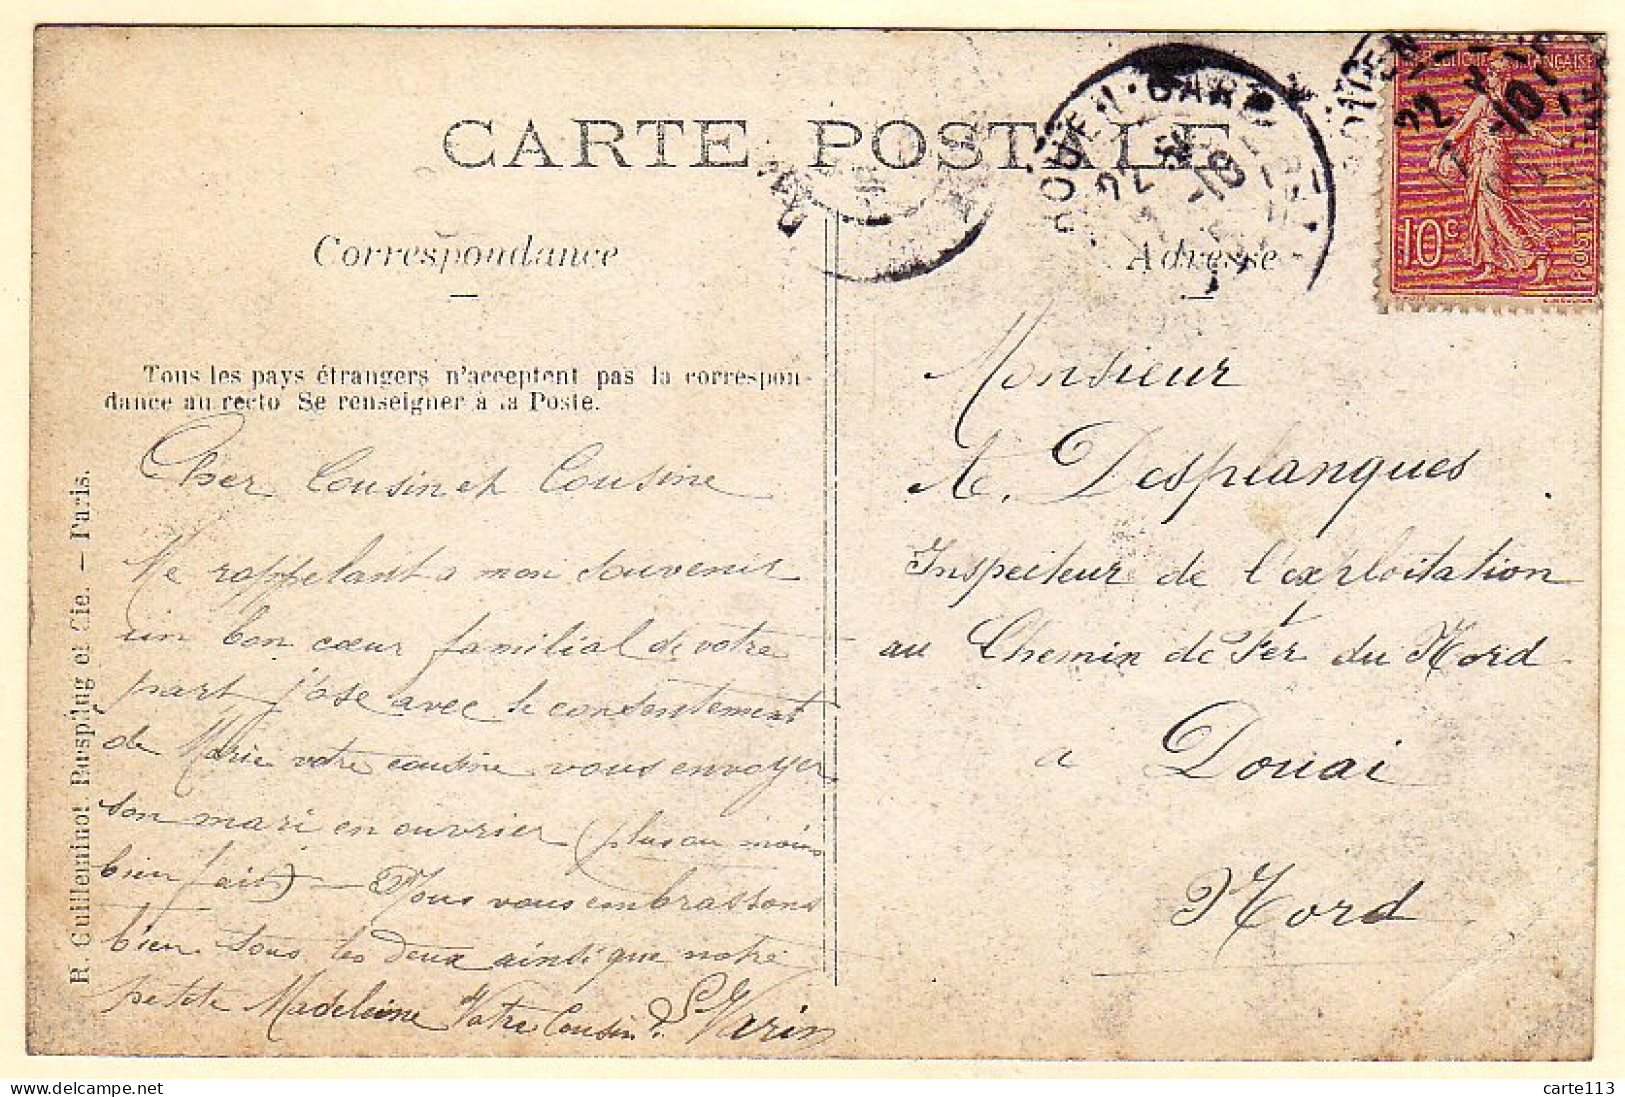 CARTE POSTALE
Correspondance
Adresse
Tous les pays étrangers n'acceptent pas la correspon-
dance au recto Se renseigner à la Poste.
R. Guilleminot Bœspflug et Cie. — Paris.
Cher Cousin et Cousine
Me rappelant a mon souvenir
un bon cœur familial de votre
part j'ose avec le consentement
de Marie votre cousine vous envoyer
son mari en ouvrier (plus ou moins
bien fait) — Nous vous embrassons
bien tous les deux ainsi que notre
petite Madeleine Votre Cousin Varin
Monsieur
A. Desplanques
Inspecteur de l'exploitation
au Chemin de Fer du Nord
a Douai
Nord
ROUEN GARE
22
10
REPUBLIQUE FRANÇAISE
10c
POSTES
22
10
carte113